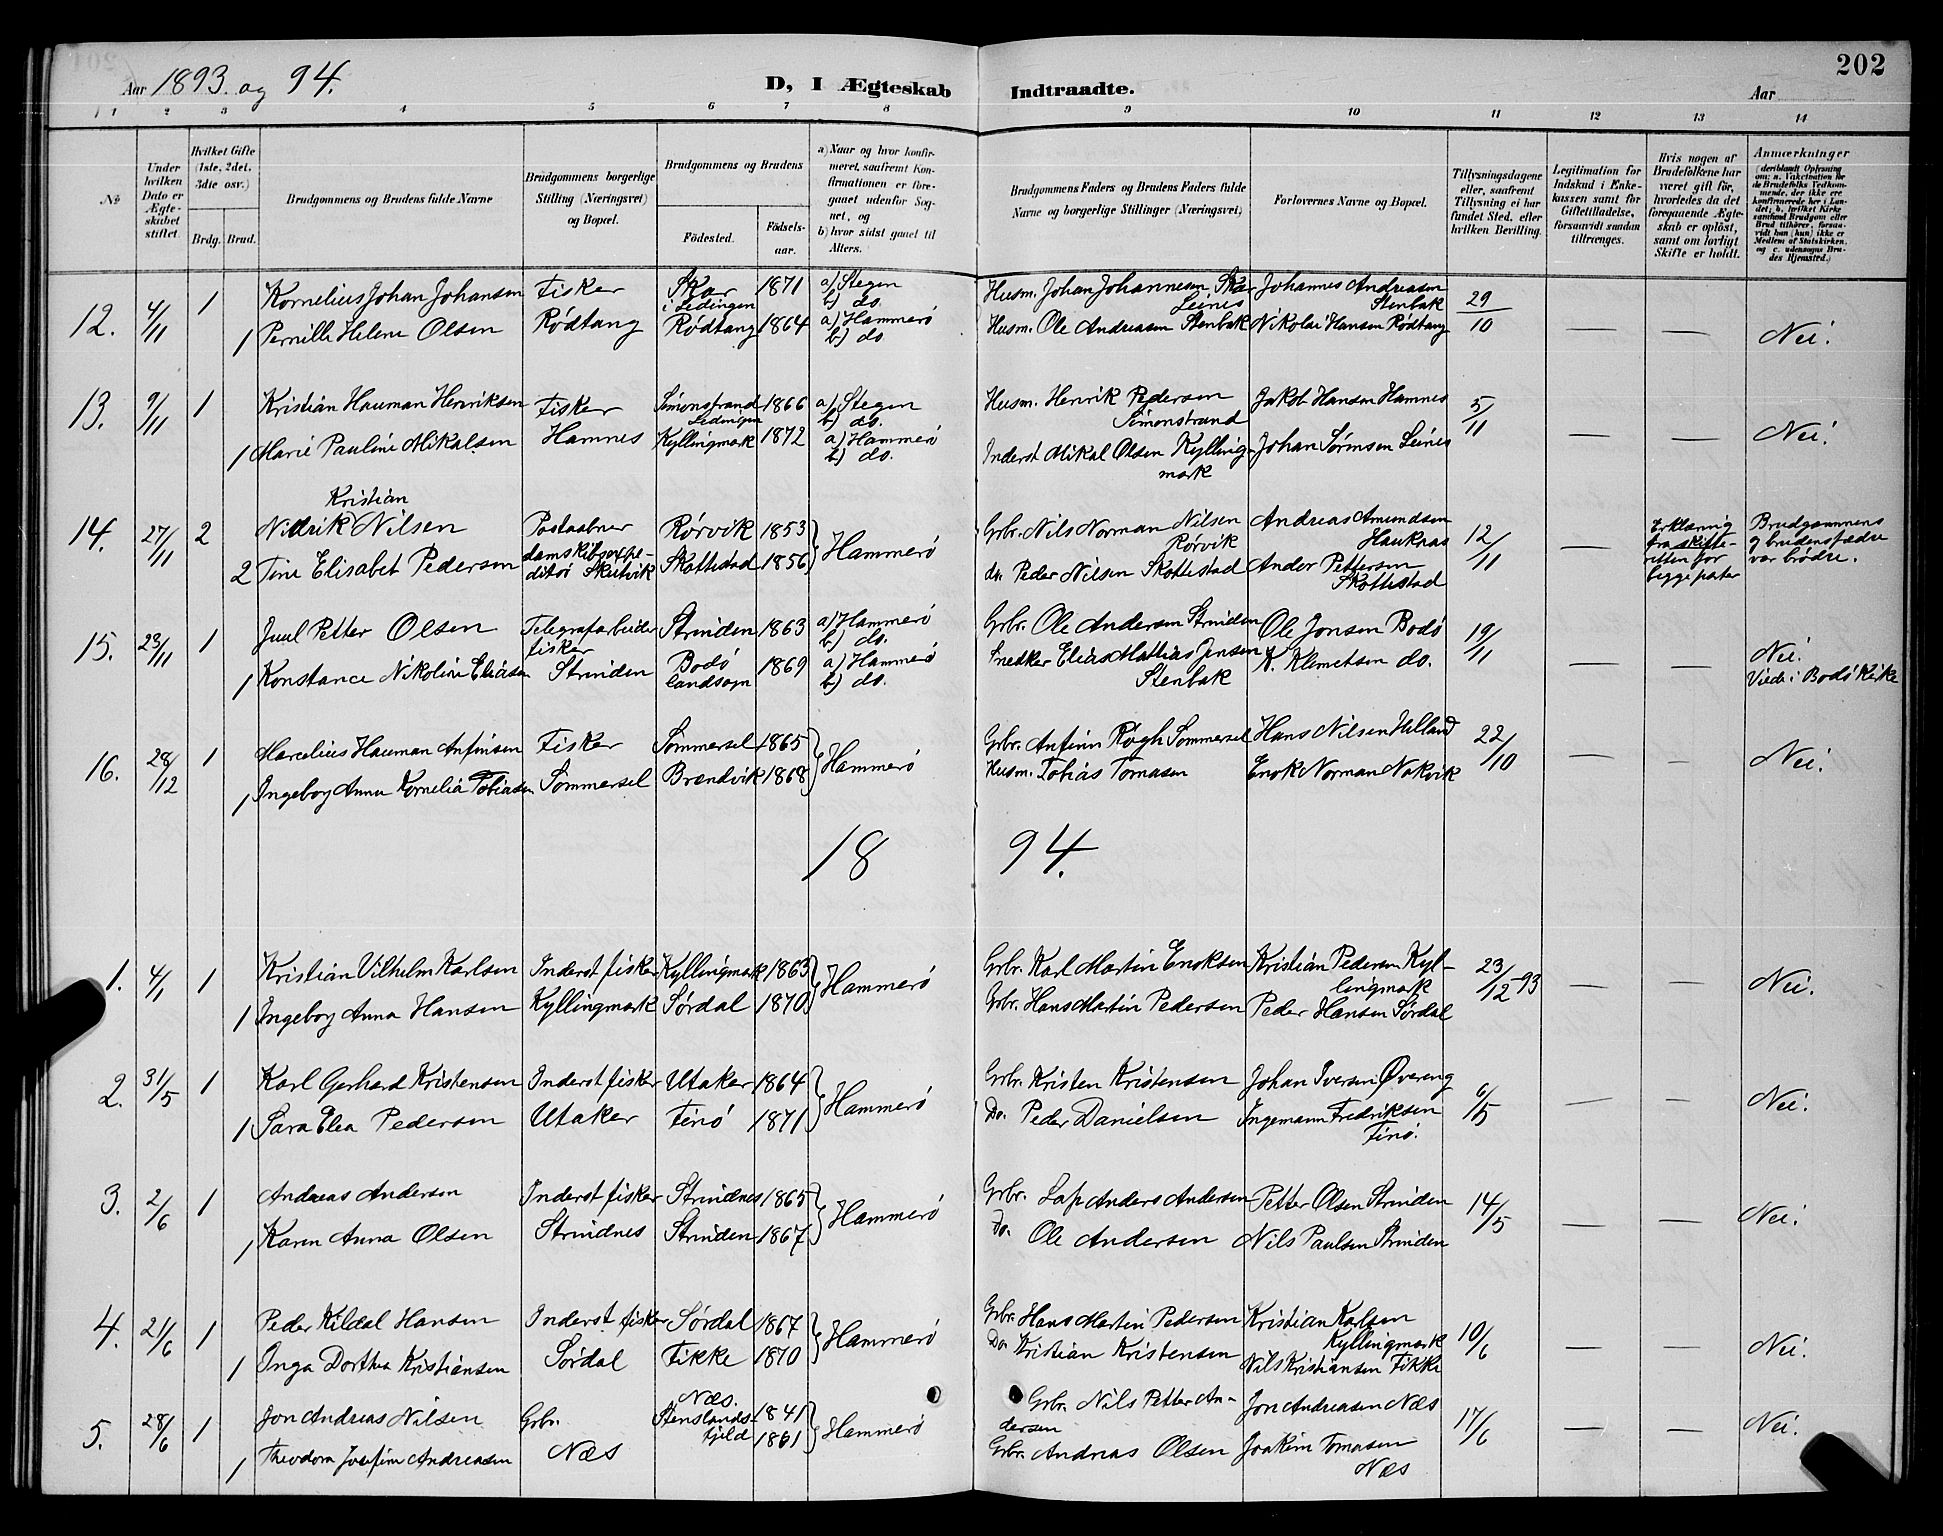 202
Aar 1893. og 94.
D, I Ægteskab Indtraadte.
Aar
1 2 3 4 5 6 7 8 9 10 11 12 13 14
№
Under hvilken Dato er Ægteskabet stiftet.
Hvilket Gifte (1ste, 2det, 3die osv.)
Brdg. Brud.
Brudgommens og Brudens fulde Navne
Brudgommens borgerlige Stilling (Næringsvei) og Bopæl.
Brudgommens og Brudens
Fødested. Fødselsaar.
a) Naar og hvor konfirmeret, saafremt Konfirmationen er foregaaet udenfor Sognet, og
b) hvor sidst gaaet til Alters.
Brudgommens Faders og Brudens Faders fulde Navne og borgerlige Stillinger (Næringsvei)
Forlovernes Navne og Bopæl.
Tillysningsdagene eller, saafremt Tillysning ei har fundet Sted, efter hvilken Bevilling.
Legitimation for Indskud i Enkekassen samt for Giftetilladelse, forsaavidt saadan tiltrænges.
Hvis nogen af Brudefolkene har været gift før, hvorledes da det foregaaende Ægteskab er opløst, samt om lovligt Skifte er holdt.
Anmærkninger (deriblandt Oplysning om: a. Vakcination for de Brudefolks Vedkommende, der ikke ere konfirmerede her i Landet; b. hvilket Kirkesamfund Brudgom eller Brud tilhører, forsaavidt han (hun) ikke er Medlem af Statskirken, og c. udensogns Brudes Hjemsted.)
12. 4/11 1 Kornelius Johan Johansen Fisker Skar i Lødingen 1871 a) Stegen b) do. Husm. Johan Johannesen Skar Leines Johannes Andreasen Stenbak 29/10
1 Pernille Helene Olsen Rødtang Rødtang 1864 a) Hammerø b) do. Husm. Ole Andreasen Stenbak Nikolai Hansen Rødtang — — Nei.
13. 9/11 1 Kristian Hauman Henriksen Fisker Simonstrand Lødingen 1866 a) Stegen b) do. Husm. Henrik Pedersen Simonstrand Jakob Hansen Hamnes 5/11
1 Marie Pauline Mikalsen Hamnes Kyllingmark 1872 a) Hammerø b) do. Inderst Mikal Olsen Kyllingmark Johan Sørensen Leines — — Nei.
14. 27/11 2 Nidrik Kristian Nilsen Postaabner Rørvik 1853 Hammerø Grbr. Nils Norman Nilsen Rørvik Andreas Amundsen Hauknas 12/11 — Erklæring fra skifteretten for begge parter Brudgommens og brudens fædre var brødre.
2 Tine Elisabet Pedersen damskibsexpeditør Skutvik Skottestad 1856 do. Peder Nilsen Skottestad Andor Pettersen Skottestad
15. 23/11 1 Juul Petter Olsen Telegrafarbeider fisker Strinden 1863 a) Hammerø b) do. Grbr. Ole Andersen Strinden Ole Jonsen Bodø 19/11
1 Konstance Nikoline Eliasen Strinden Bodø landsogn 1869 a) Hammerø b) do. Snedker Elias Mattias Jensen Stenbak K. Klemetsen do. — — Nei. Viede i Bodø Kirke
16. 28/12 1 Marcelius Hauman Anfinsen Fisker Sommersel 1865 Hammerø Grbr. Anfinn Røgh Sommersel Hans Nilsen Helland 22/10
1 Ingeborg Anna Kornelia Tobiasen Sommersel Brendvik 1868 Husm. Tobias Tomasen Enok Norman Nakvik — — Nei.
18 94.
1. 4/1 1 Kristian Vilhelm Karlsen Inderst fisker Kyllingmark 1863 Hammerø Grbr. Karl Martin Enoksen Kristian Pedersen Kyllingmark 23/12 93
1 Ingeborg Anna Hansen Kyllingmark Sørdal 1870 Grbr. Hans Martin Pedersen Peder Hansen Sørdal — — Nei.
2. 31/5 1 Karl Gerhard Kristensen Inderst fisker Utaker 1864 Hammerø Grbr. Kristen Kristensen Johan Iversen Øvereng 6/5
1 Sara Elea Pedersen Utaker Finø 1871 Do. Peder Danielsen Ingemann Fredriksen Finø. — — Nei.
3. 2/6 1 Andreas Andersen Inderst fisker Strindnes 1865 Hammerø Grbr. Lap Anders Andersen Petter Olsen Strinden 14/5
1 Karen Anna Olsen Strindnes Strinden 1867 Do. Ole Andersen Nils Paulsen Strinden — — Nei.
4. 21/6 1 Peder Kildal Hansen Inderst fisker Sørdal 1867 Hammerø Grbr. Hans Martin Pedersen Kristian Karlsen Kyllingmark 10/6
1 Inga Dorthea Kristiansen Sørdal Fikke 1870 Do. Kristian Kristensen Nils Kristiansen Fikke — — Nei.
5. 28/6 1 Jon Andreas Nilsen Grbr. Næs. 1841 Hammerø Grbr. Nils Petter Andersen Jon Andreasen Næs 17/6
1 Theodora Josefine Andreasen Næs Stenslandsfjeld 1861 Grbr. Andreas Olsen Joakim Tomasen Næs — — Nei.